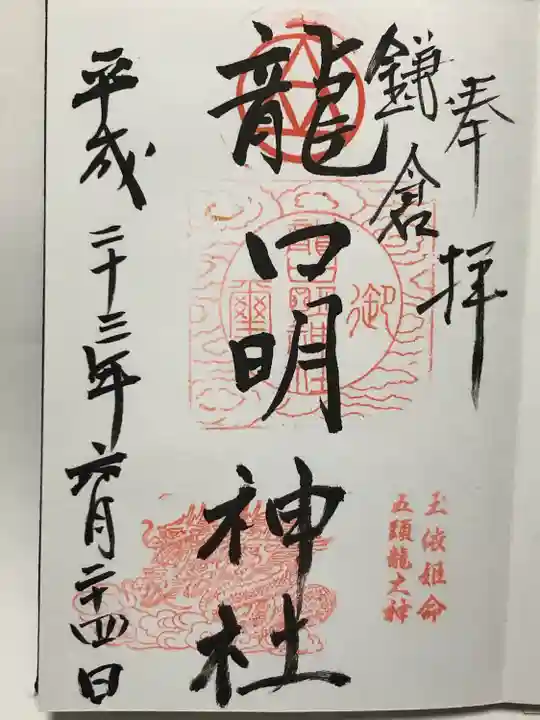 奉拝
鎌倉
龍口明神社
平成二十三年六月二十四日
玉依姫命
五頭龍之神